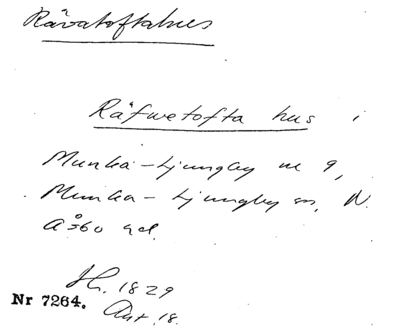 Rävatoftahus
Räfwetofta hus i
Munka-Ljungby nr 9,
Munka-Ljungby sn, N.
Åsbo hd.
H. 1829
Nr 7264. Avt. 18.